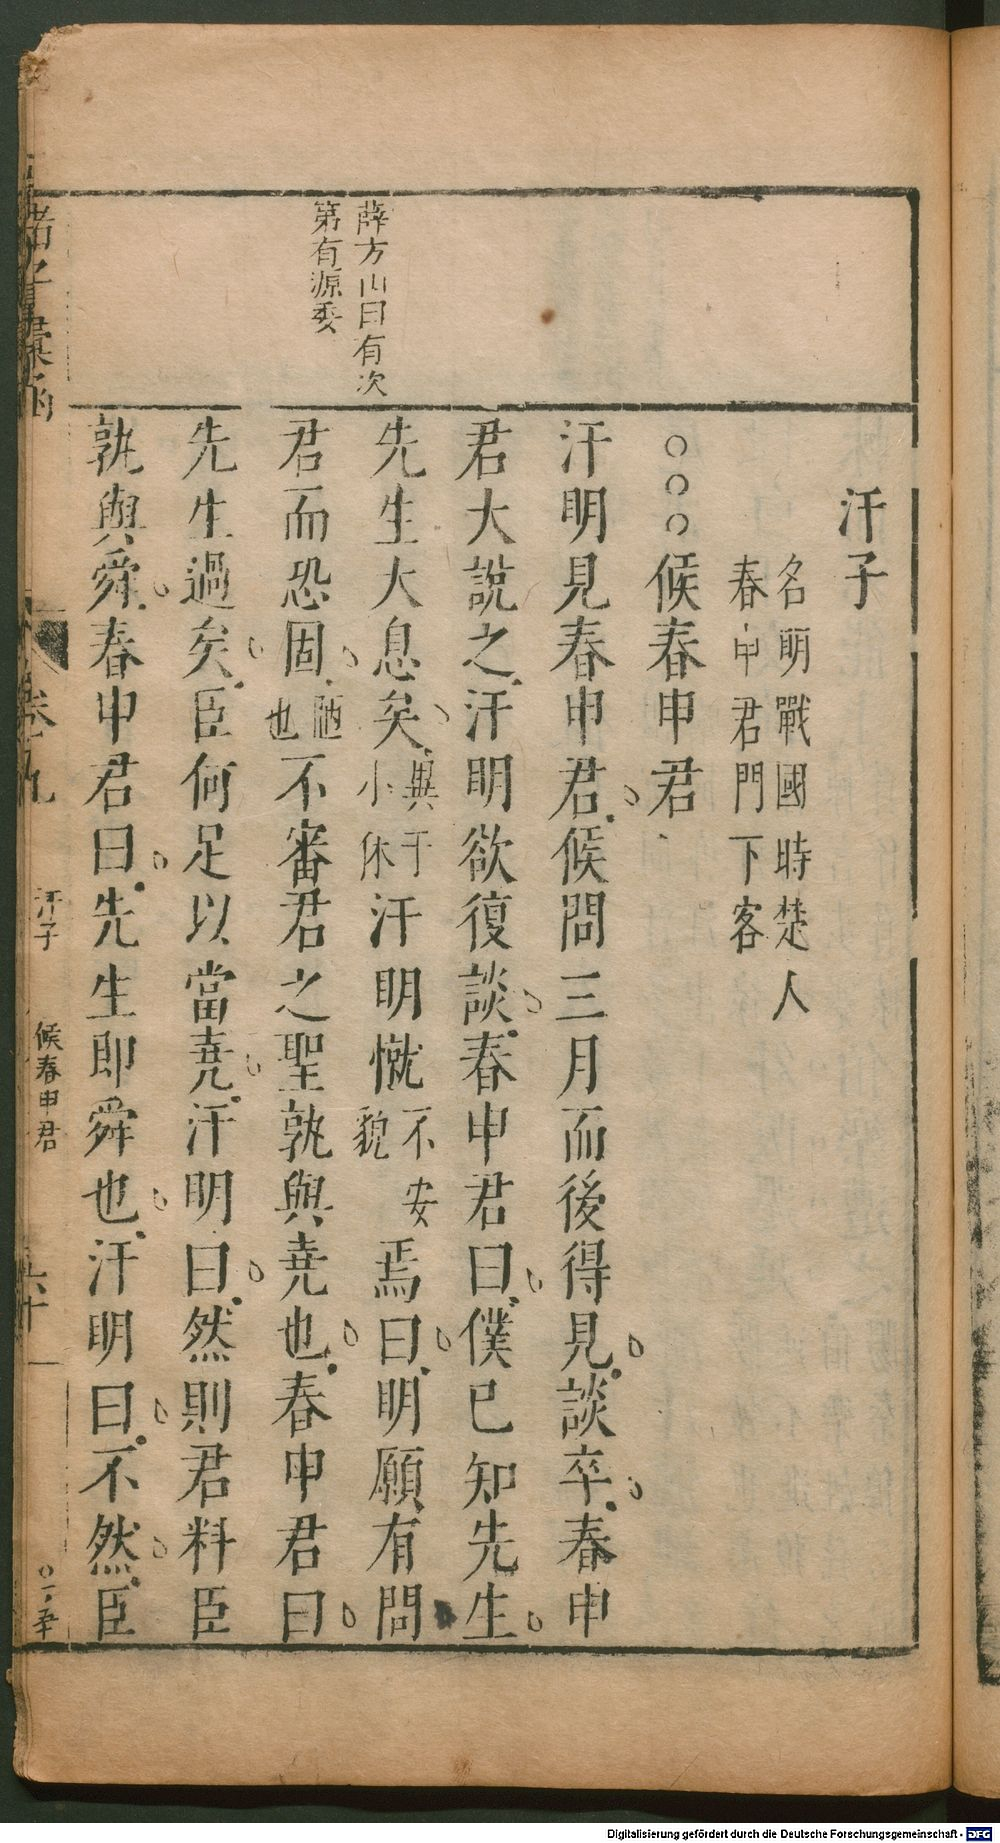 汗子
名明戰國時楚人
春申君門下客
○○○候春申君
汗明見春申君候問三月而後得見談卒春申
君大說之汗明欲復談春申君曰僕已知先生
先生大息矣與下小休汗明憱不安貌焉曰明願有問
君而恐固陋也不審君之聖孰與堯也春申君曰
先生過矣臣何足以當堯汗明曰然則君料臣
孰與舜春申君曰先生即舜也汗明曰不然臣
薛方山曰有次
第有源委
諸子彙函
卷九
汗子
候春申君
六十一
Digitalisierung gefördert durch die Deutsche Forschungsgemeinschaft - DFG